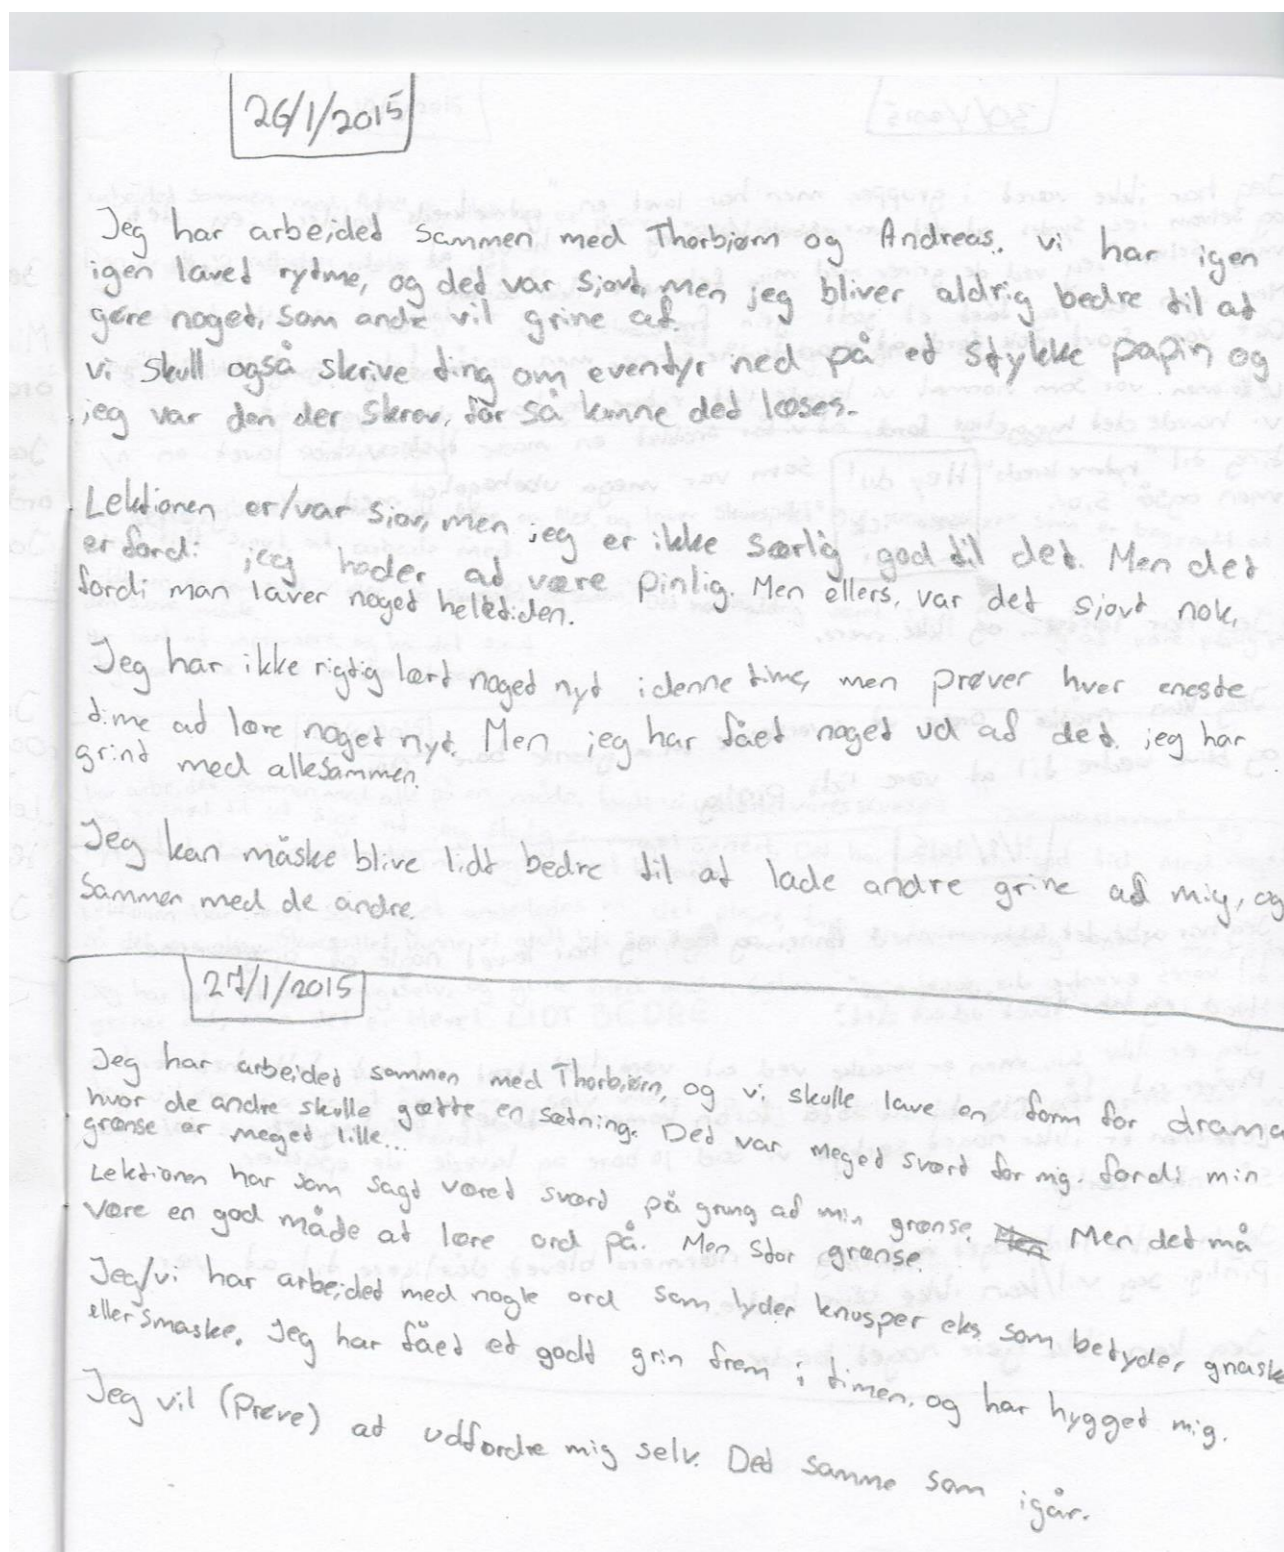 26/1/2015
Jeg har arbejdet sammen med Thorbjørn og Andreas. vi har igen
igen lavet rytme, og det var sjovt, men jeg bliver aldrig bedre til at
gøre noget, som andre vil grine af.
vi skull også skrive ting om eventyr ned på et stykke papir og
jeg var den der skrev, for så kunne det læses.
Lektionen er/var sjov, men jeg er ikke særlig god til det. Men det
er fordi jeg hader at være pinlig. Men ellers, var det sjovt nok,
fordi man laver noget heletiden.
Jeg har ikke rigtig lært noget nyt i denne time, men prøver hver eneste
time at lære noget nyt. Men jeg har fået noget ud af det. jeg har
grint med allesammen.
Jeg kan måske blive lidt bedre til at lade andre grine af mig, og
sammen med de andre.
27/1/2015
Jeg har arbejdet sammen med Thorbjørn, og vi skulle lave en form for drama
hvor de andre skulle gætte en sætning. Det var meget svært for mig. fordi min
grænse er meget lille...
Lektionen har som sagt været svært på grung af min grænse. Men det må
være en god måde at lære ord på. Men stor grænse.
Jeg/vi har arbejdet med nogle ord som lyder knusper eks. som betyder gnaske
eller smaske. Jeg har fået et godt grin frem i timen, og har hygget mig.
Jeg vil (prøve) at udfordre mig selv. Det samme som igår.